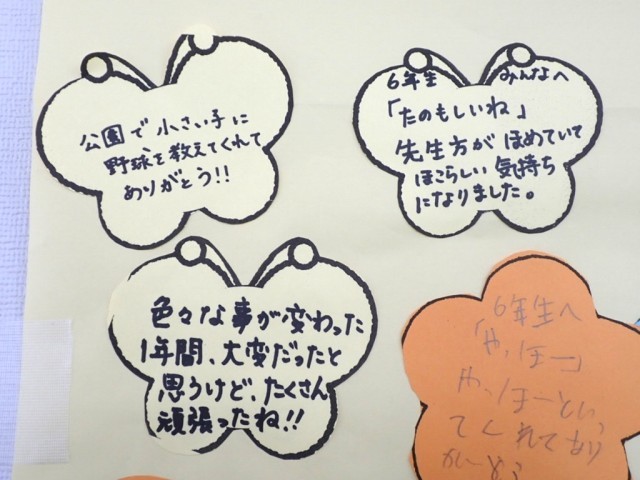 公園で小さい子に
野球を教えてくれて
ありがとう!!
6年生 みんなへ
「たのもしいね」
先生方が ほめていて
ほこらしい 気持ち
になりました。
色々な事が変わった
1年間、大変だったと
思うけど、たくさん
頑張ったね!!
6年生へ
「やっほー」
やっほーといっ
てくれてあり
がとう